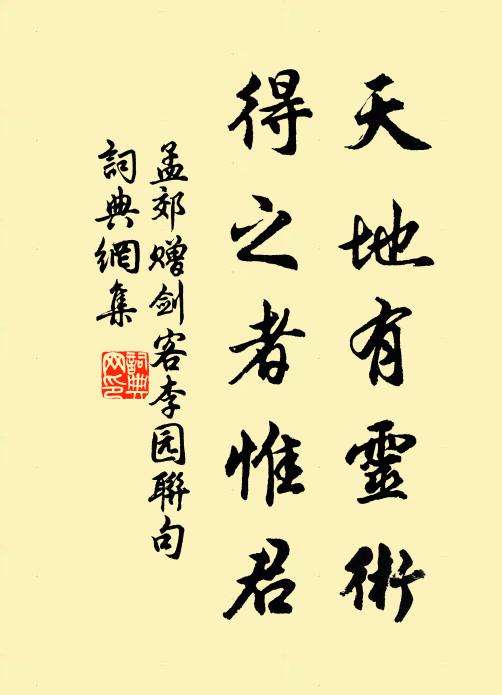 天地有靈術
得之者惟君
孟郊赠剑客李园聯句
詞典網集
詞典
网印